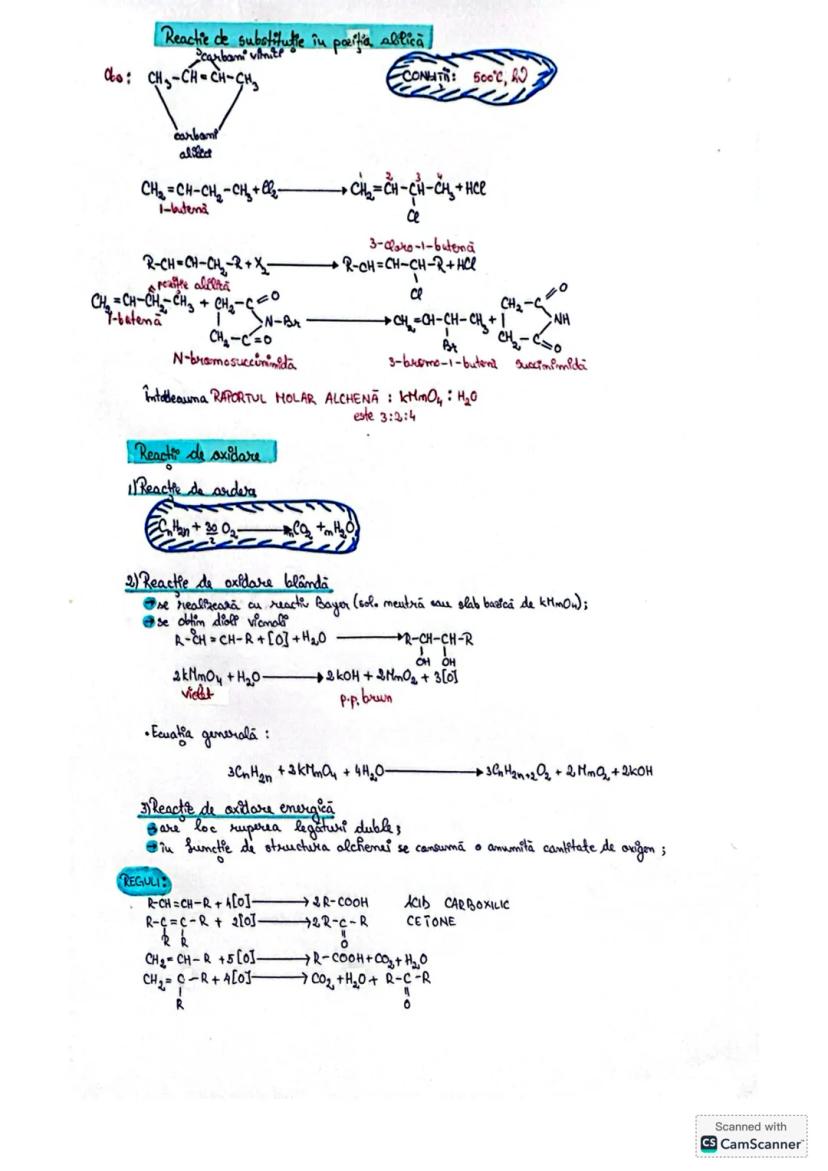 Reacție de substituție în poziția alilică
carboni vinilici
Obs: CH₃-CH=CH-CH₃
CONDIȚII: 500°C, hν
carboni
alilici
CH₂=CH-CH₂-CH₃+Cl₂ → CH₂=CH-CH-CH₃+HCl
1 2 3 4
1-butenă
Cl
3-cloro-1-butenă
R-CH=CH-CH₂-R+X₂ → R-CH=CH-CH-R+HCl
poziție alilică
Cl
CH₂=CH-CH₂-CH₃ + CH₂-C=O
CH₂-C=O
N-Br → CH₂=CH-CH-CH₃+
CH₂-C=O
NH
CH₂-C=O
1-butenă
Br
N-bromosuccinimidă
3-bromo-1-butenă succinimidă
Întotdeauna RAPORTUL MOLAR ALCHENĂ : KMnO₄ : H₂O
este 3:2:4
Reacții de oxidare
1) Reacție de ardere
CₙH₂ₙ + 3n/2 O₂ → nCO₂ + nH₂O
2) Reacție de oxidare blândă
→ se realizează cu reactiv Bayer (sol. neutră sau slab bazică de KMnO₄);
→ se obțin dioli vicinali
R-CH=CH-R+[O]+H₂O → R-CH-CH-R
OH OH
2KMnO₄+H₂O → 2KOH+2MnO₂+3[O]
violet
p.p. brun
• Ecuația generală :
3CₙH₂ₙ+2KMnO₄+4H₂O → 3CₙH₂ₙ₊₂O₂+2MnO₂+2KOH
3) Reacție de oxidare energică
→ are loc ruperea legături duble;
→ în funcție de structura alchenei se consumă o anumită cantitate de oxigen;
REGULI:
R-CH=CH-R+4[O] → 2R-COOH ACID CARBOXILIC
R-C=C-R+2[O] → 2R-C-R CETONE
R R
O
CH₂=CH-R+5[O] → R-COOH+CO₂+H₂O
CH₂=C-R+4[O] → CO₂+H₂O+R-C-R
R
O
Scanned with
CS CamScanner